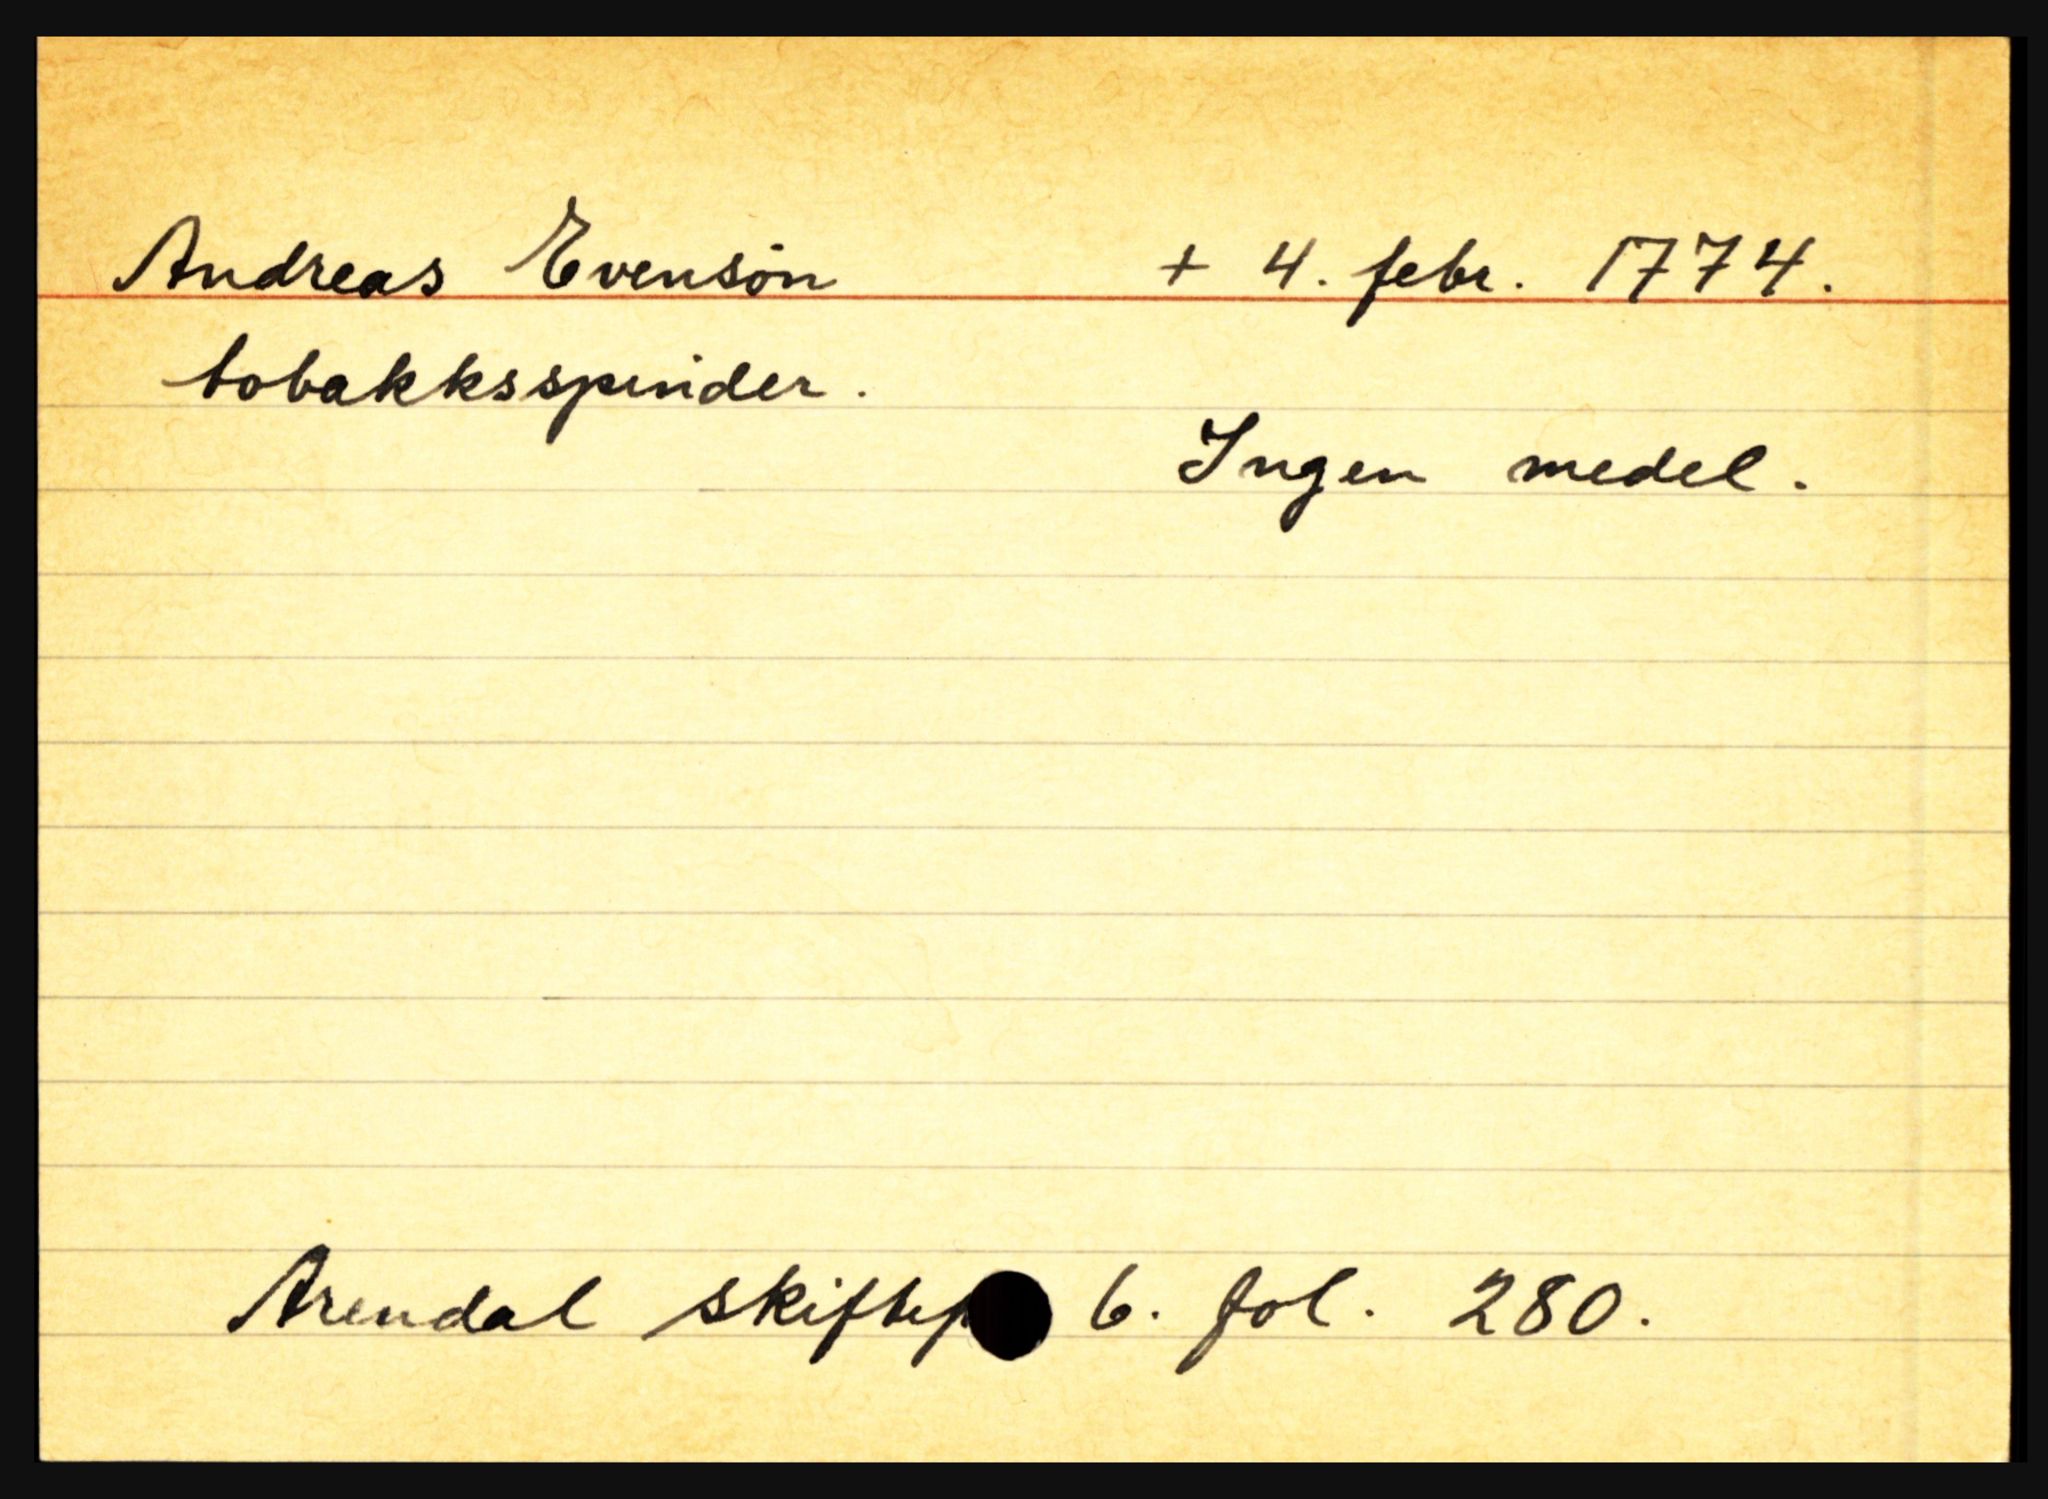 Andreas Evensøn + 4. febr. 1774.
tobakksspinder.
Ingen medel.
Arendal 6. fol. 280.